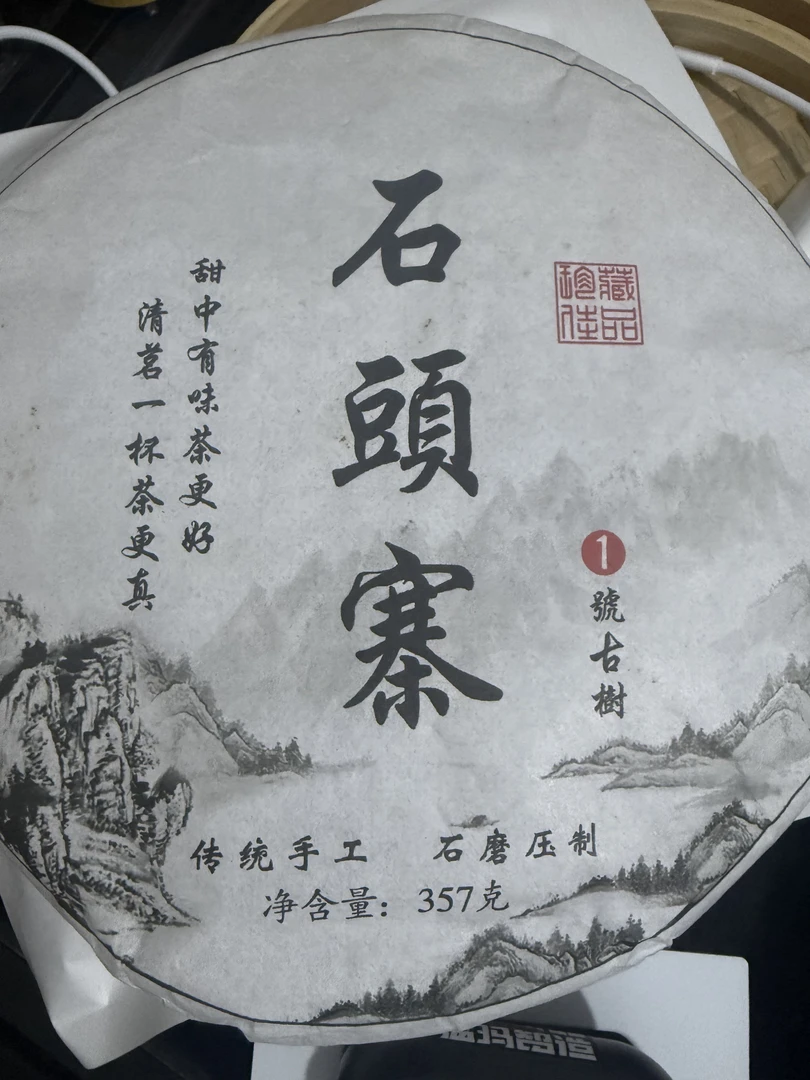 石頭寨
甜中有味茶更好
清茗一杯茶更真
藏品
珍佳
1號古樹
传统手工 石磨压制
净含量：357克